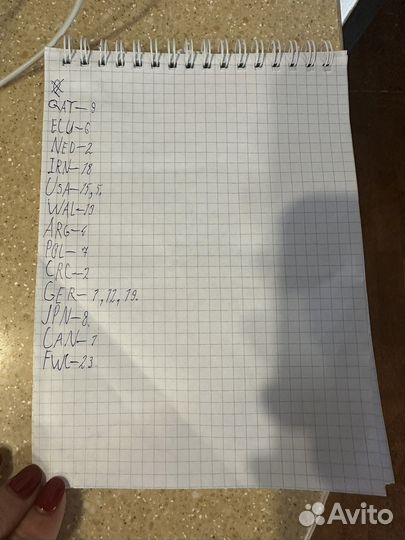 QAT-9
ECU-6
NED-2
IRN-18
USA-15,5.
WAL-19
ARG-4
POL-7
CRC-2
GER-1,12,19.
JPN-8.
CAN-1
FWC-23
Avito